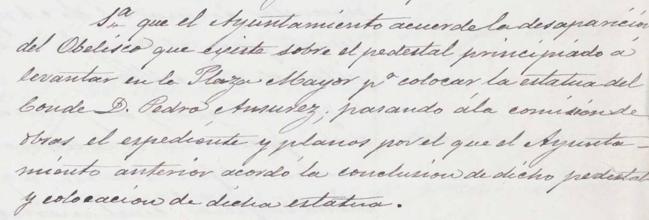 1ª que el Ayuntamiento acuerde la desaparición
del Obelisco que existe sobre el pedestal principiado á
levantar en la Plaza Mayor pª colocar la estatua del
Conde D. Pedro Ansurez, pasando á la comisión de
obras el espediente y planos por el que el Ayunta-
miento anterior acordó la conclusion de dicho pedestal
y colocacion de dicha estatua.